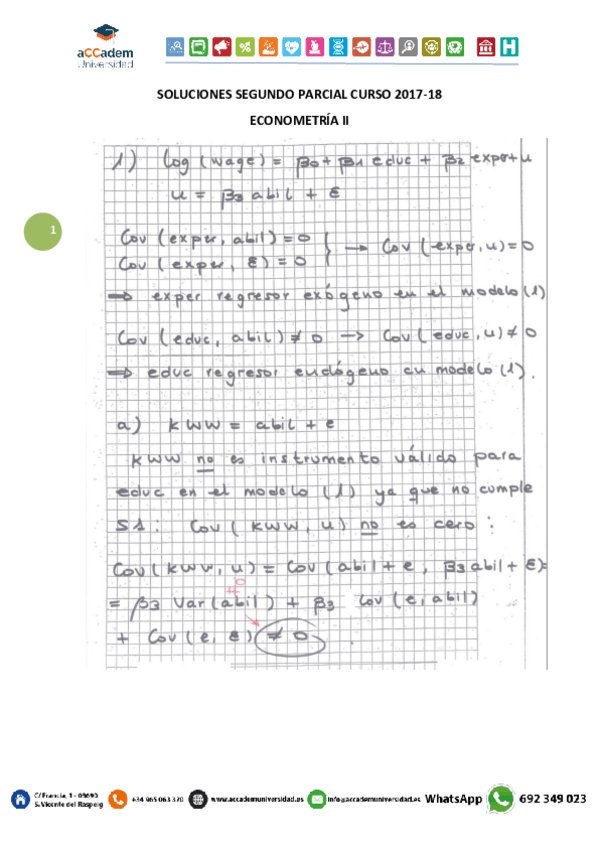 aCCadem
Universidad
SOLUCIONES SEGUNDO PARCIAL CURSO 2017-18
ECONOMETRÍA II
1
1) log (wage) = β0 + β1 educ + β2 exper + u
u = β3 abil + ε
Cov (exper, abil) = 0
Cov (exper, ε) = 0 } → Cov (exper, u) = 0
⇒ exper regresor exógeno en el modelo (1)
Cov (educ, abil) ≠ 0 → Cov (educ, u) ≠ 0
⇒ educ regresor endógeno en modelo (1).
a) KWW = abil + e
KWW no es instrumento válido para
educ en el modelo (1) ya que no cumple
S1: Cov (KWW, u) no es cero:
Cov (KWW, u) = Cov (abil + e, β3 abil + ε) =
≠0
= β3 Var (abil) + β3 Cov (e, abil)
+ Cov (e, ε) ≠ 0
C/ Francia, 1 - 03690
S. Vicente del Raspeig
+34 965 063 320
www.accademuniversidad.es
info@accademuniversidad.es
WhatsApp
692 349 023